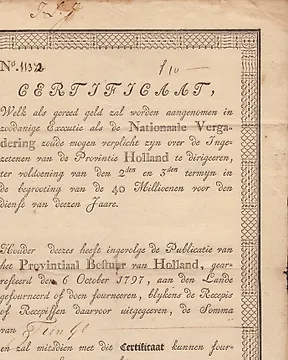 No. 1132
f 10
CERTIFICAAT,
Welk als gereed geld zal worden aangenomen in
zoodanige Executie als de Nationaale Verga-
dering zoude mogen verplicht zyn over de Inge-
zetenen van de Provintie Holland te dirigeeren,
ter voldoening van den 2den en 3den termyn in
de begrooting van de 40 Millioenen voor den
dienst van deezen Jaare.
Houder deezes heeft ingevolge de Publicatie van
het Provintiaal Bestuur van Holland, gear-
resteerd den 6 October 1797, aan den Lande
gefourneerd of doen fourneeren, blykens de Recepis
of Recepissen daarvoor uitgegeeven, de Somma
van
en zal mitsdien met dit Certificaat kunnen four-